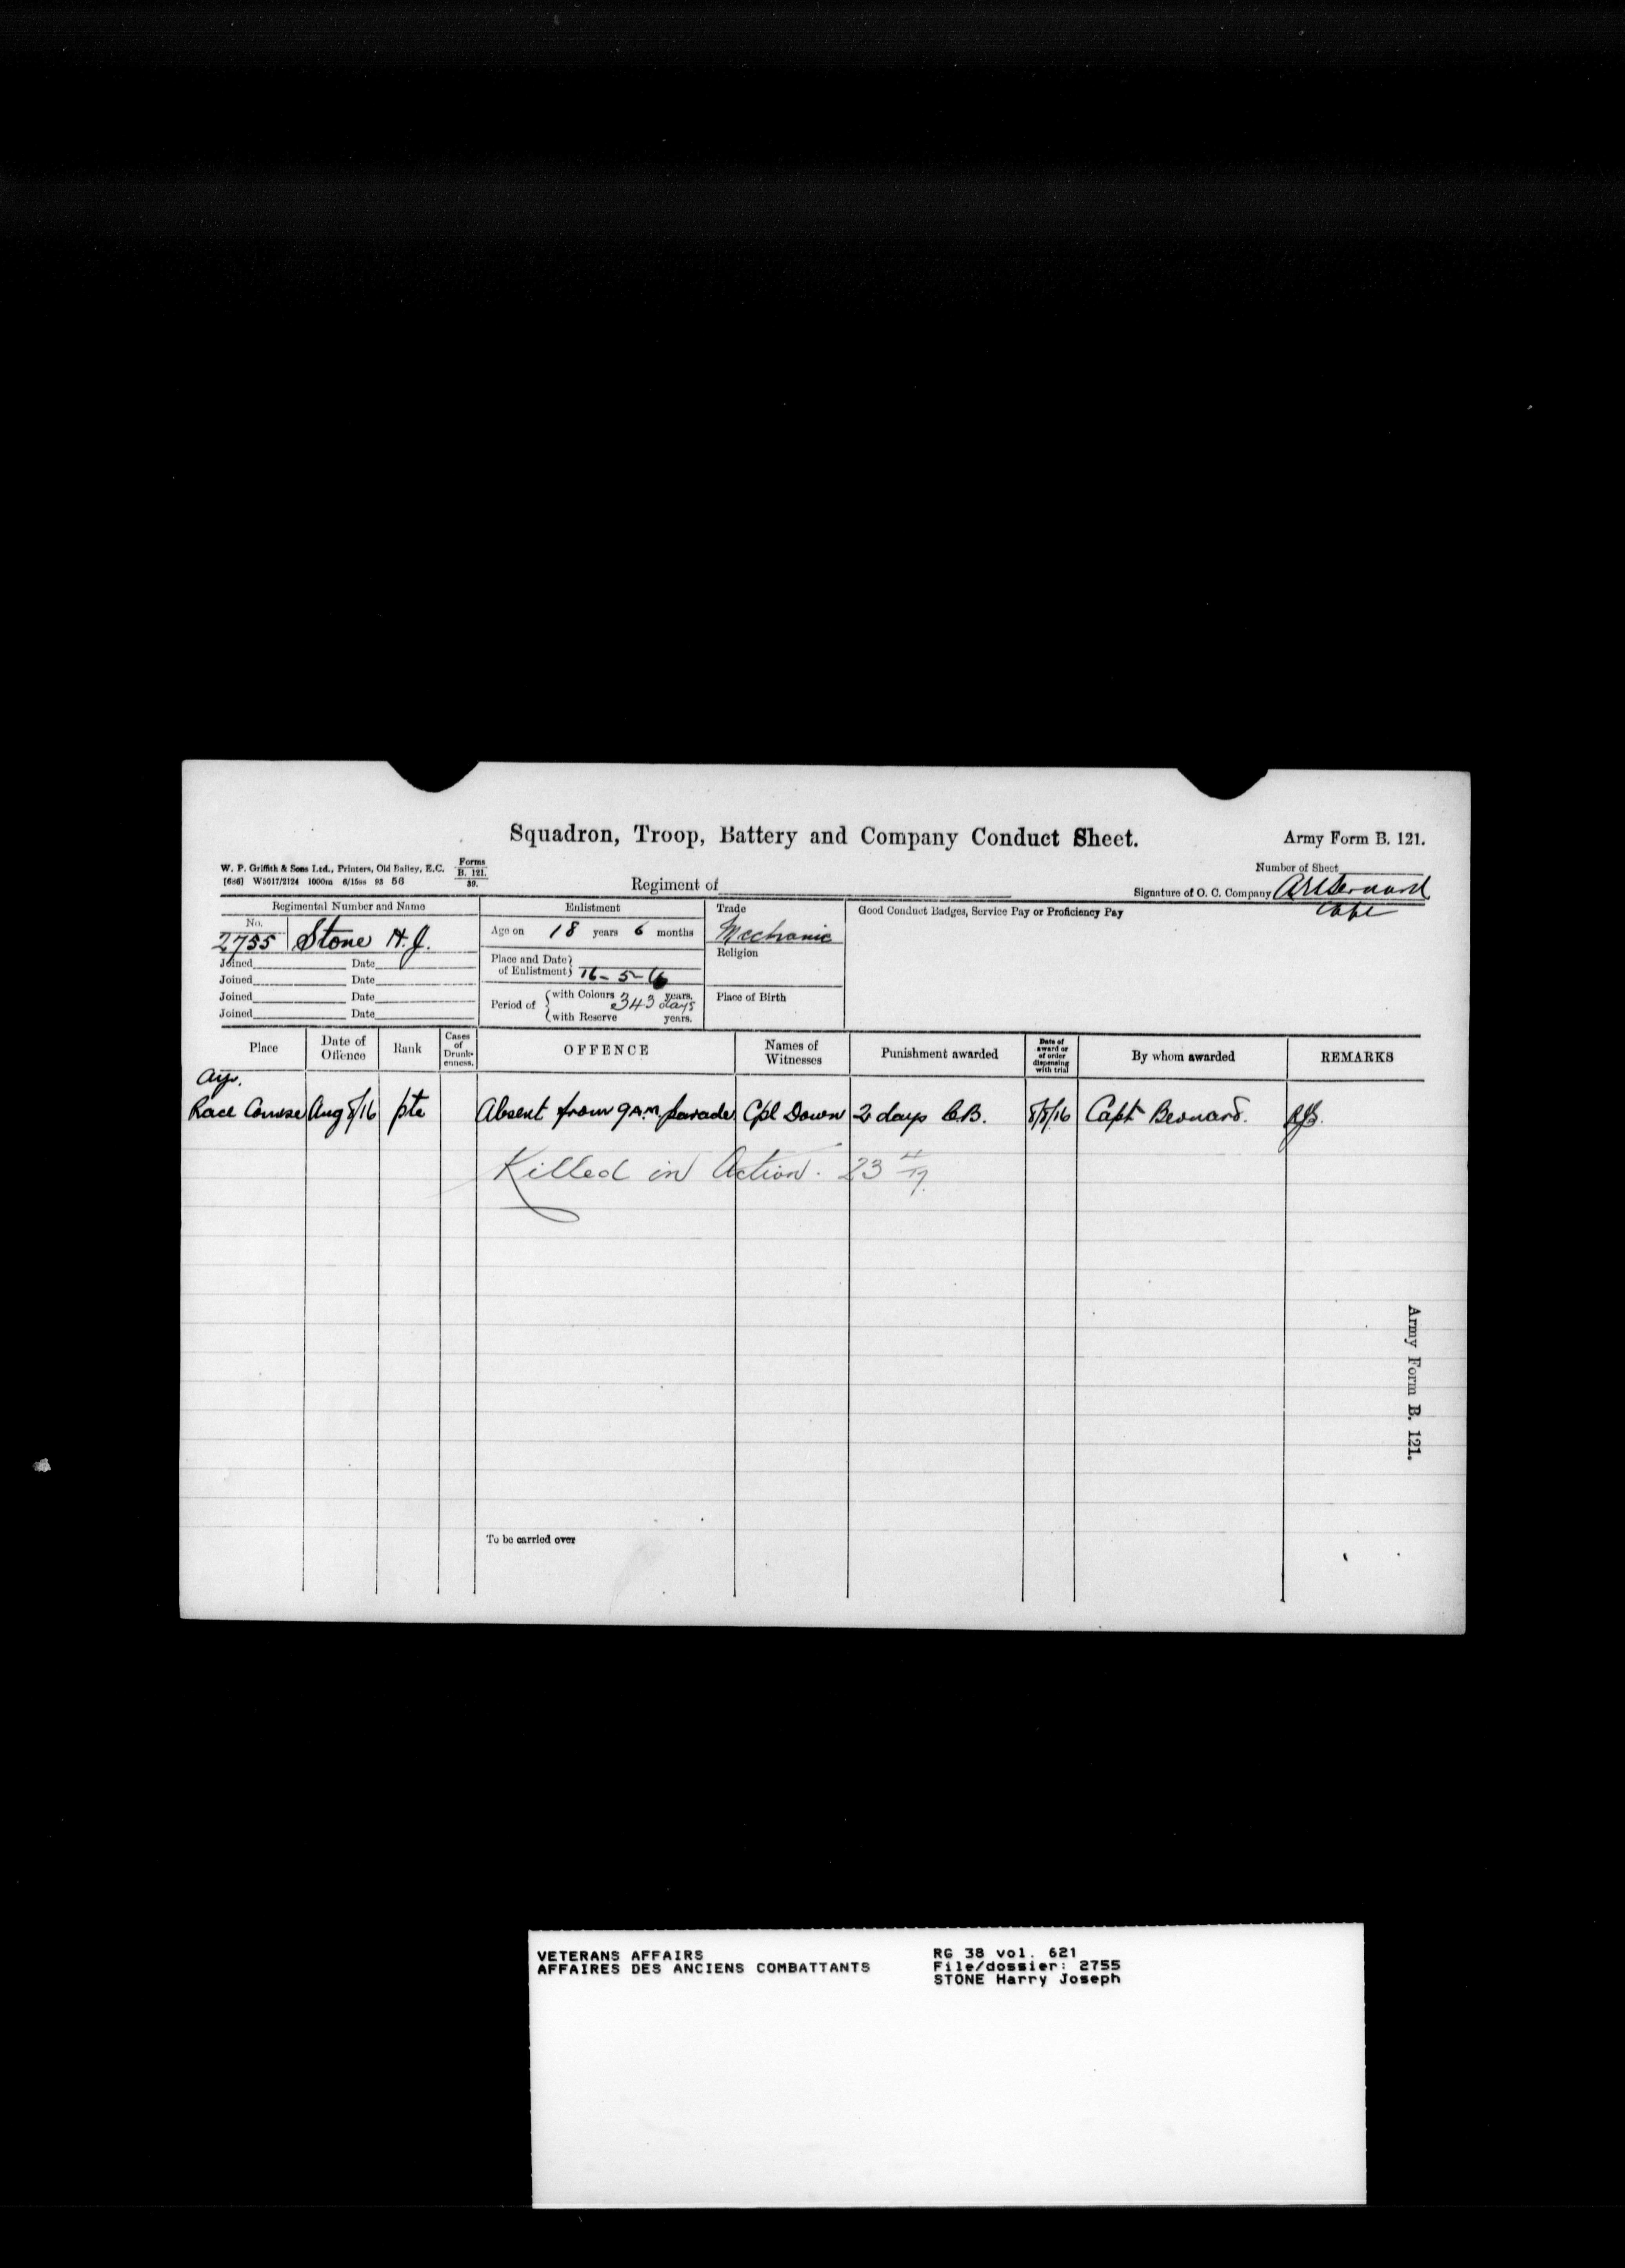 Squadron, Troop, Battery and Company Conduct Sheet.
Army Form B. 121.
W. P. Griffith & Sons Ltd., Printers, Old Bailey, E.C.
Forms B. 121. 39.
W5017/2124 1000m 6/15 93 56
Number of Sheet
Regiment of
Signature of O. C. Company
Capt
Regimental Number and Name
Enlistment
Trade
Good Conduct Badges, Service Pay or Proficiency Pay
No.
2755 Stone H. J.
Age on 18 years 6 months
Mechanic
Joined Date
Place and Date of Enlistment 16-5-16
Religion
Joined Date
Joined Date
Period of with Colours 343 days years.
Place of Birth
Joined Date
with Reserve years.
Place
Date of Offence
Rank
Cases of Drunkenness.
OFFENCE
Names of Witnesses
Punishment awarded
Date of award or of order dispensing with trial
By whom awarded
REMARKS
Ayr.
Race Course Aug 8/16 pte Absent from 9 A.M. parade Cpl Down 2 days C.B. 8/8/16 Capt Bernard.
Killed in Action. 23 4/17.
Army Form B. 121.
To be carried over
VETERANS AFFAIRS
AFFAIRES DES ANCIENS COMBATTANTS
RG 38 vol. 621
File/dossier: 2755
STONE Harry Joseph